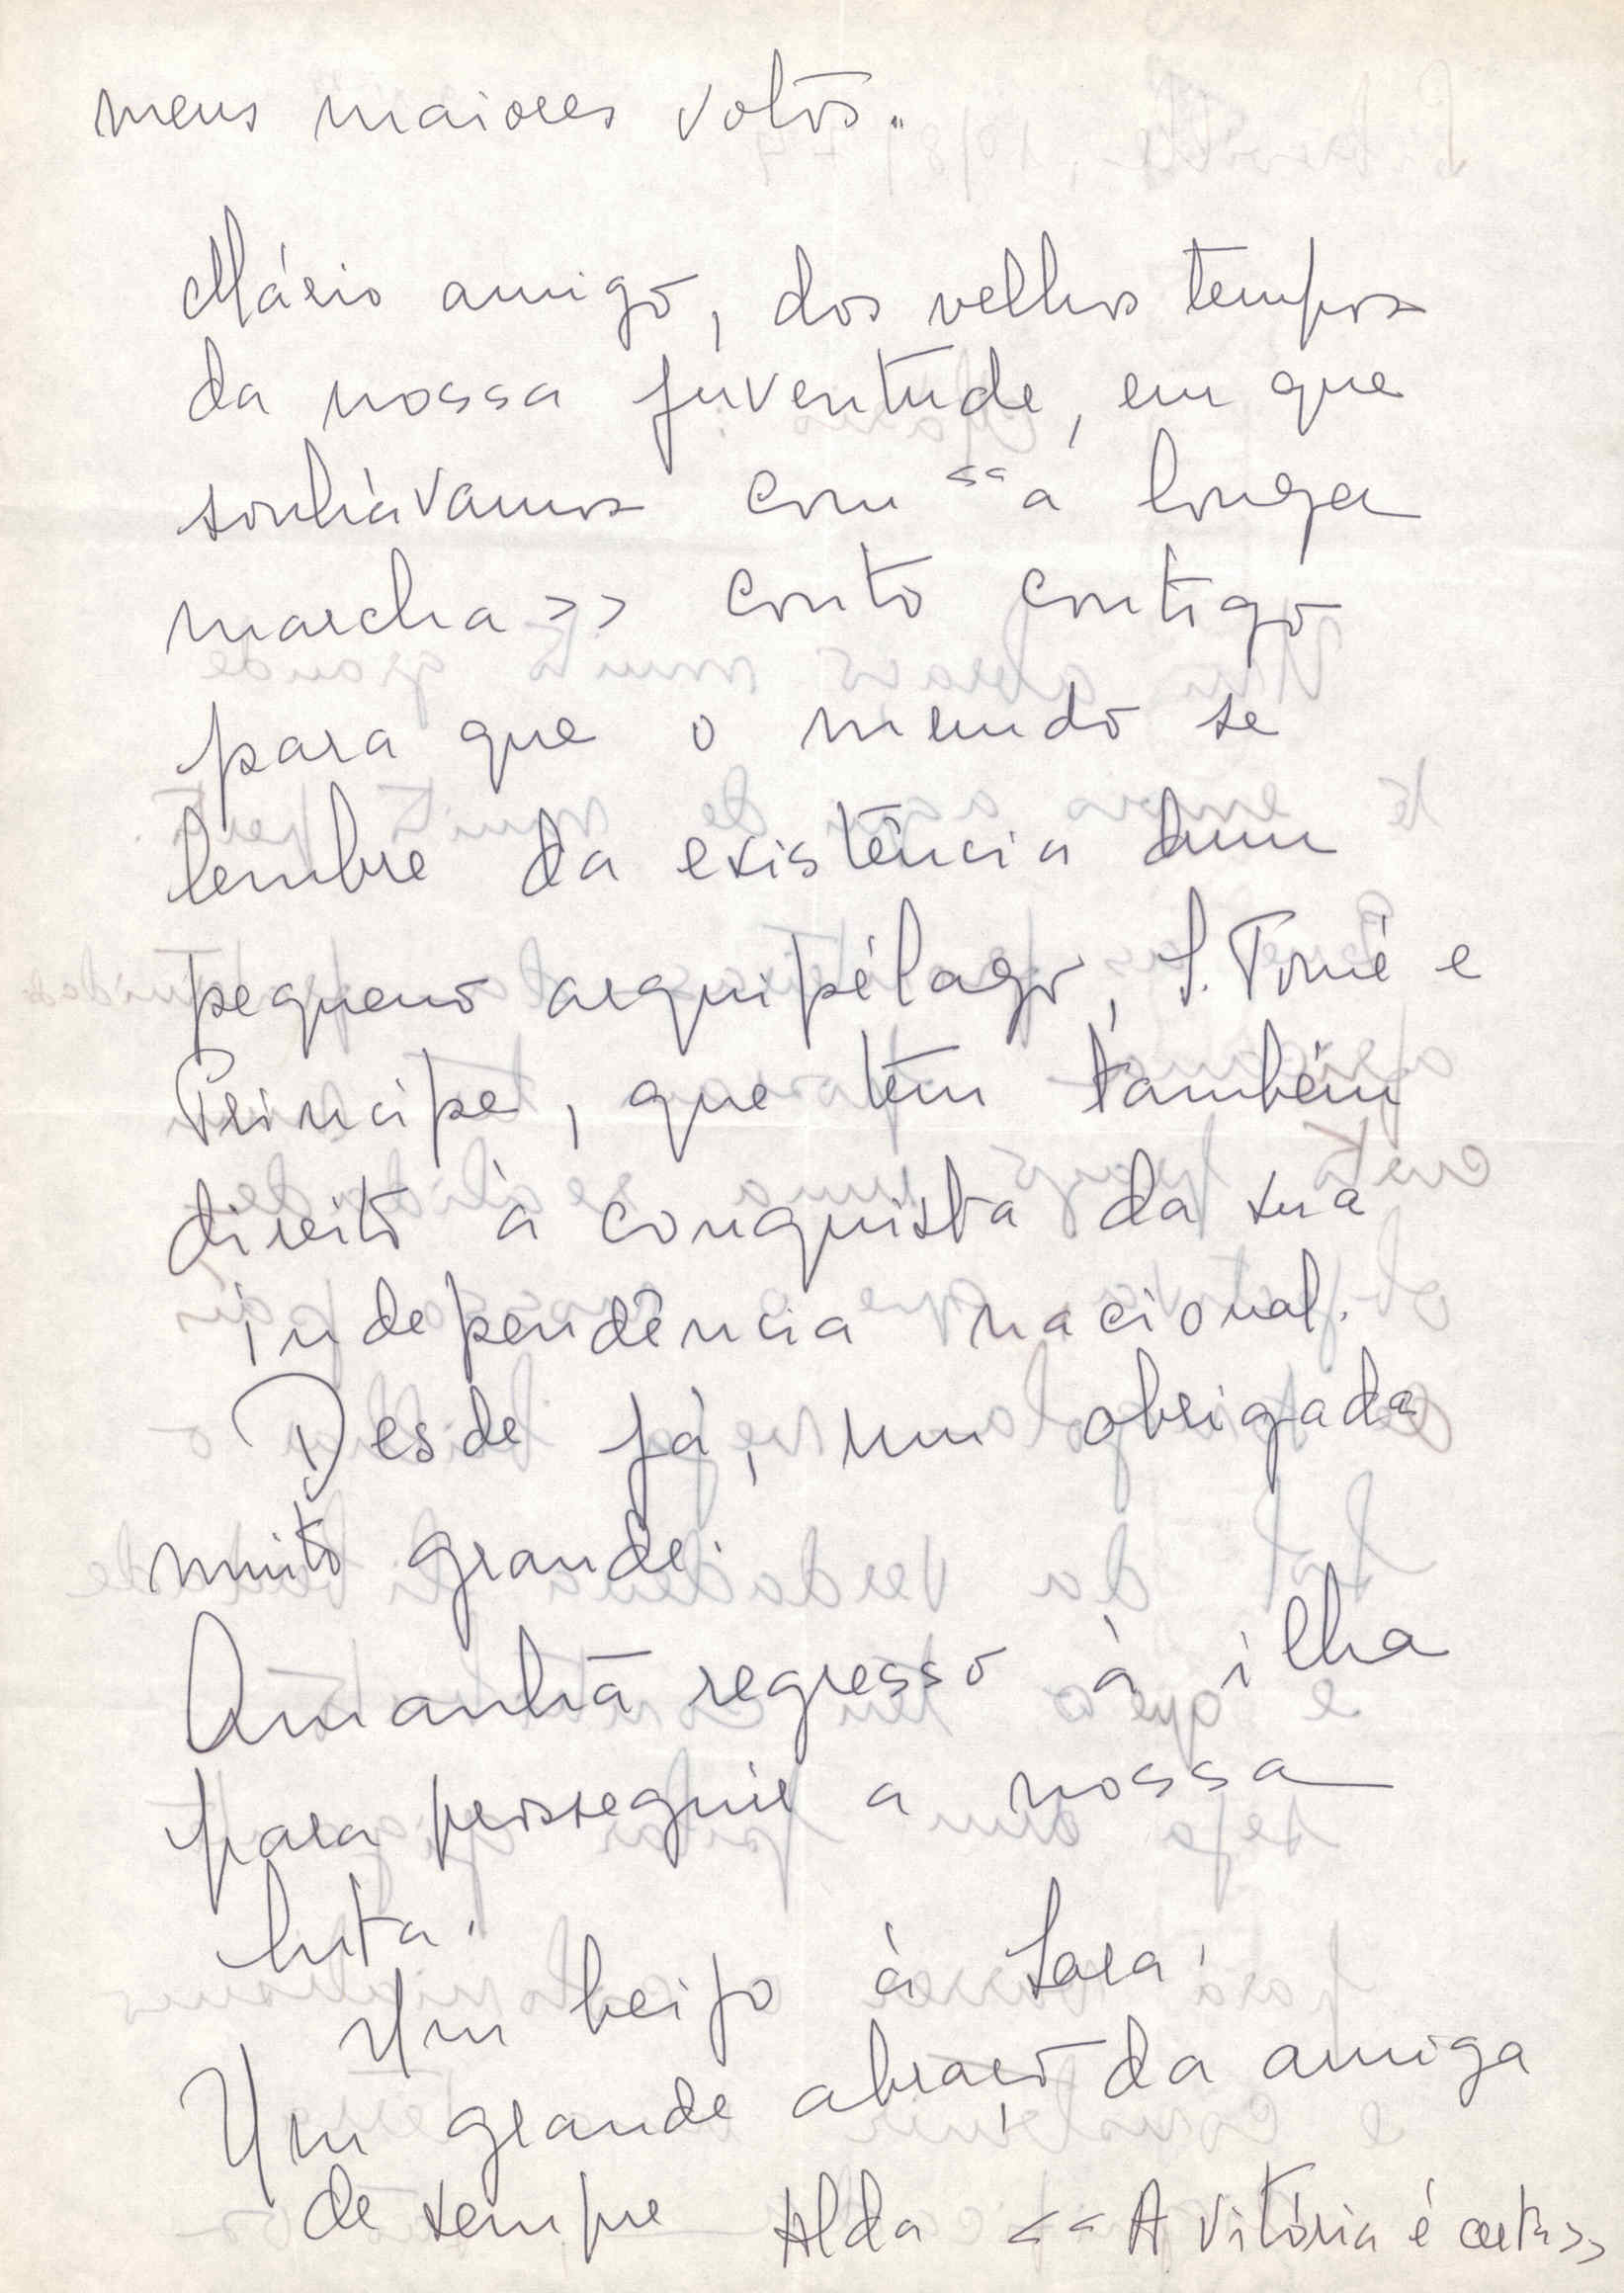 meus maiores votos.
Mário amigo, dos velhos tempos
da nossa juventude, em que
sonhávamos com <<a longa
marcha>> conto contigo
para que o mundo se
lembre da existência dum
pequeno arquipélago, S. Tomé e
Príncipe, que tem também
direito à conquista da sua
independência nacional.
Desde já, um obrigada
muito grande.
Amanhã regresso à ilha
para prosseguir a nossa
luta.
Um beijo à Sara.
Um grande abraço da amiga
de sempre Alda <<A Vitória é certa>>